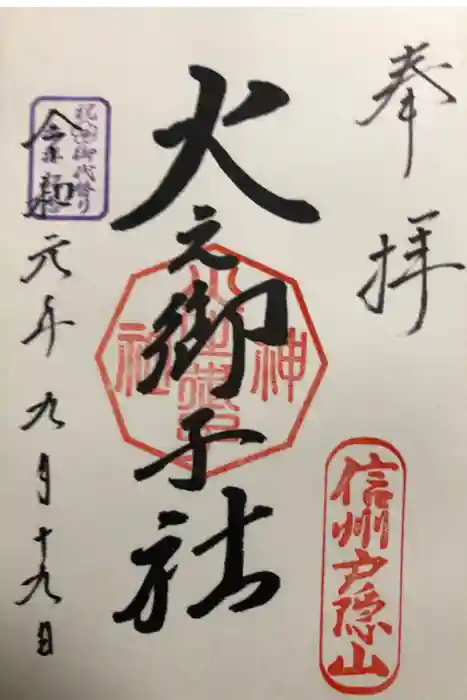 奉拝
信州戸隠山
火之御子社
神
社
祝御代替り
令和元年九月十九日